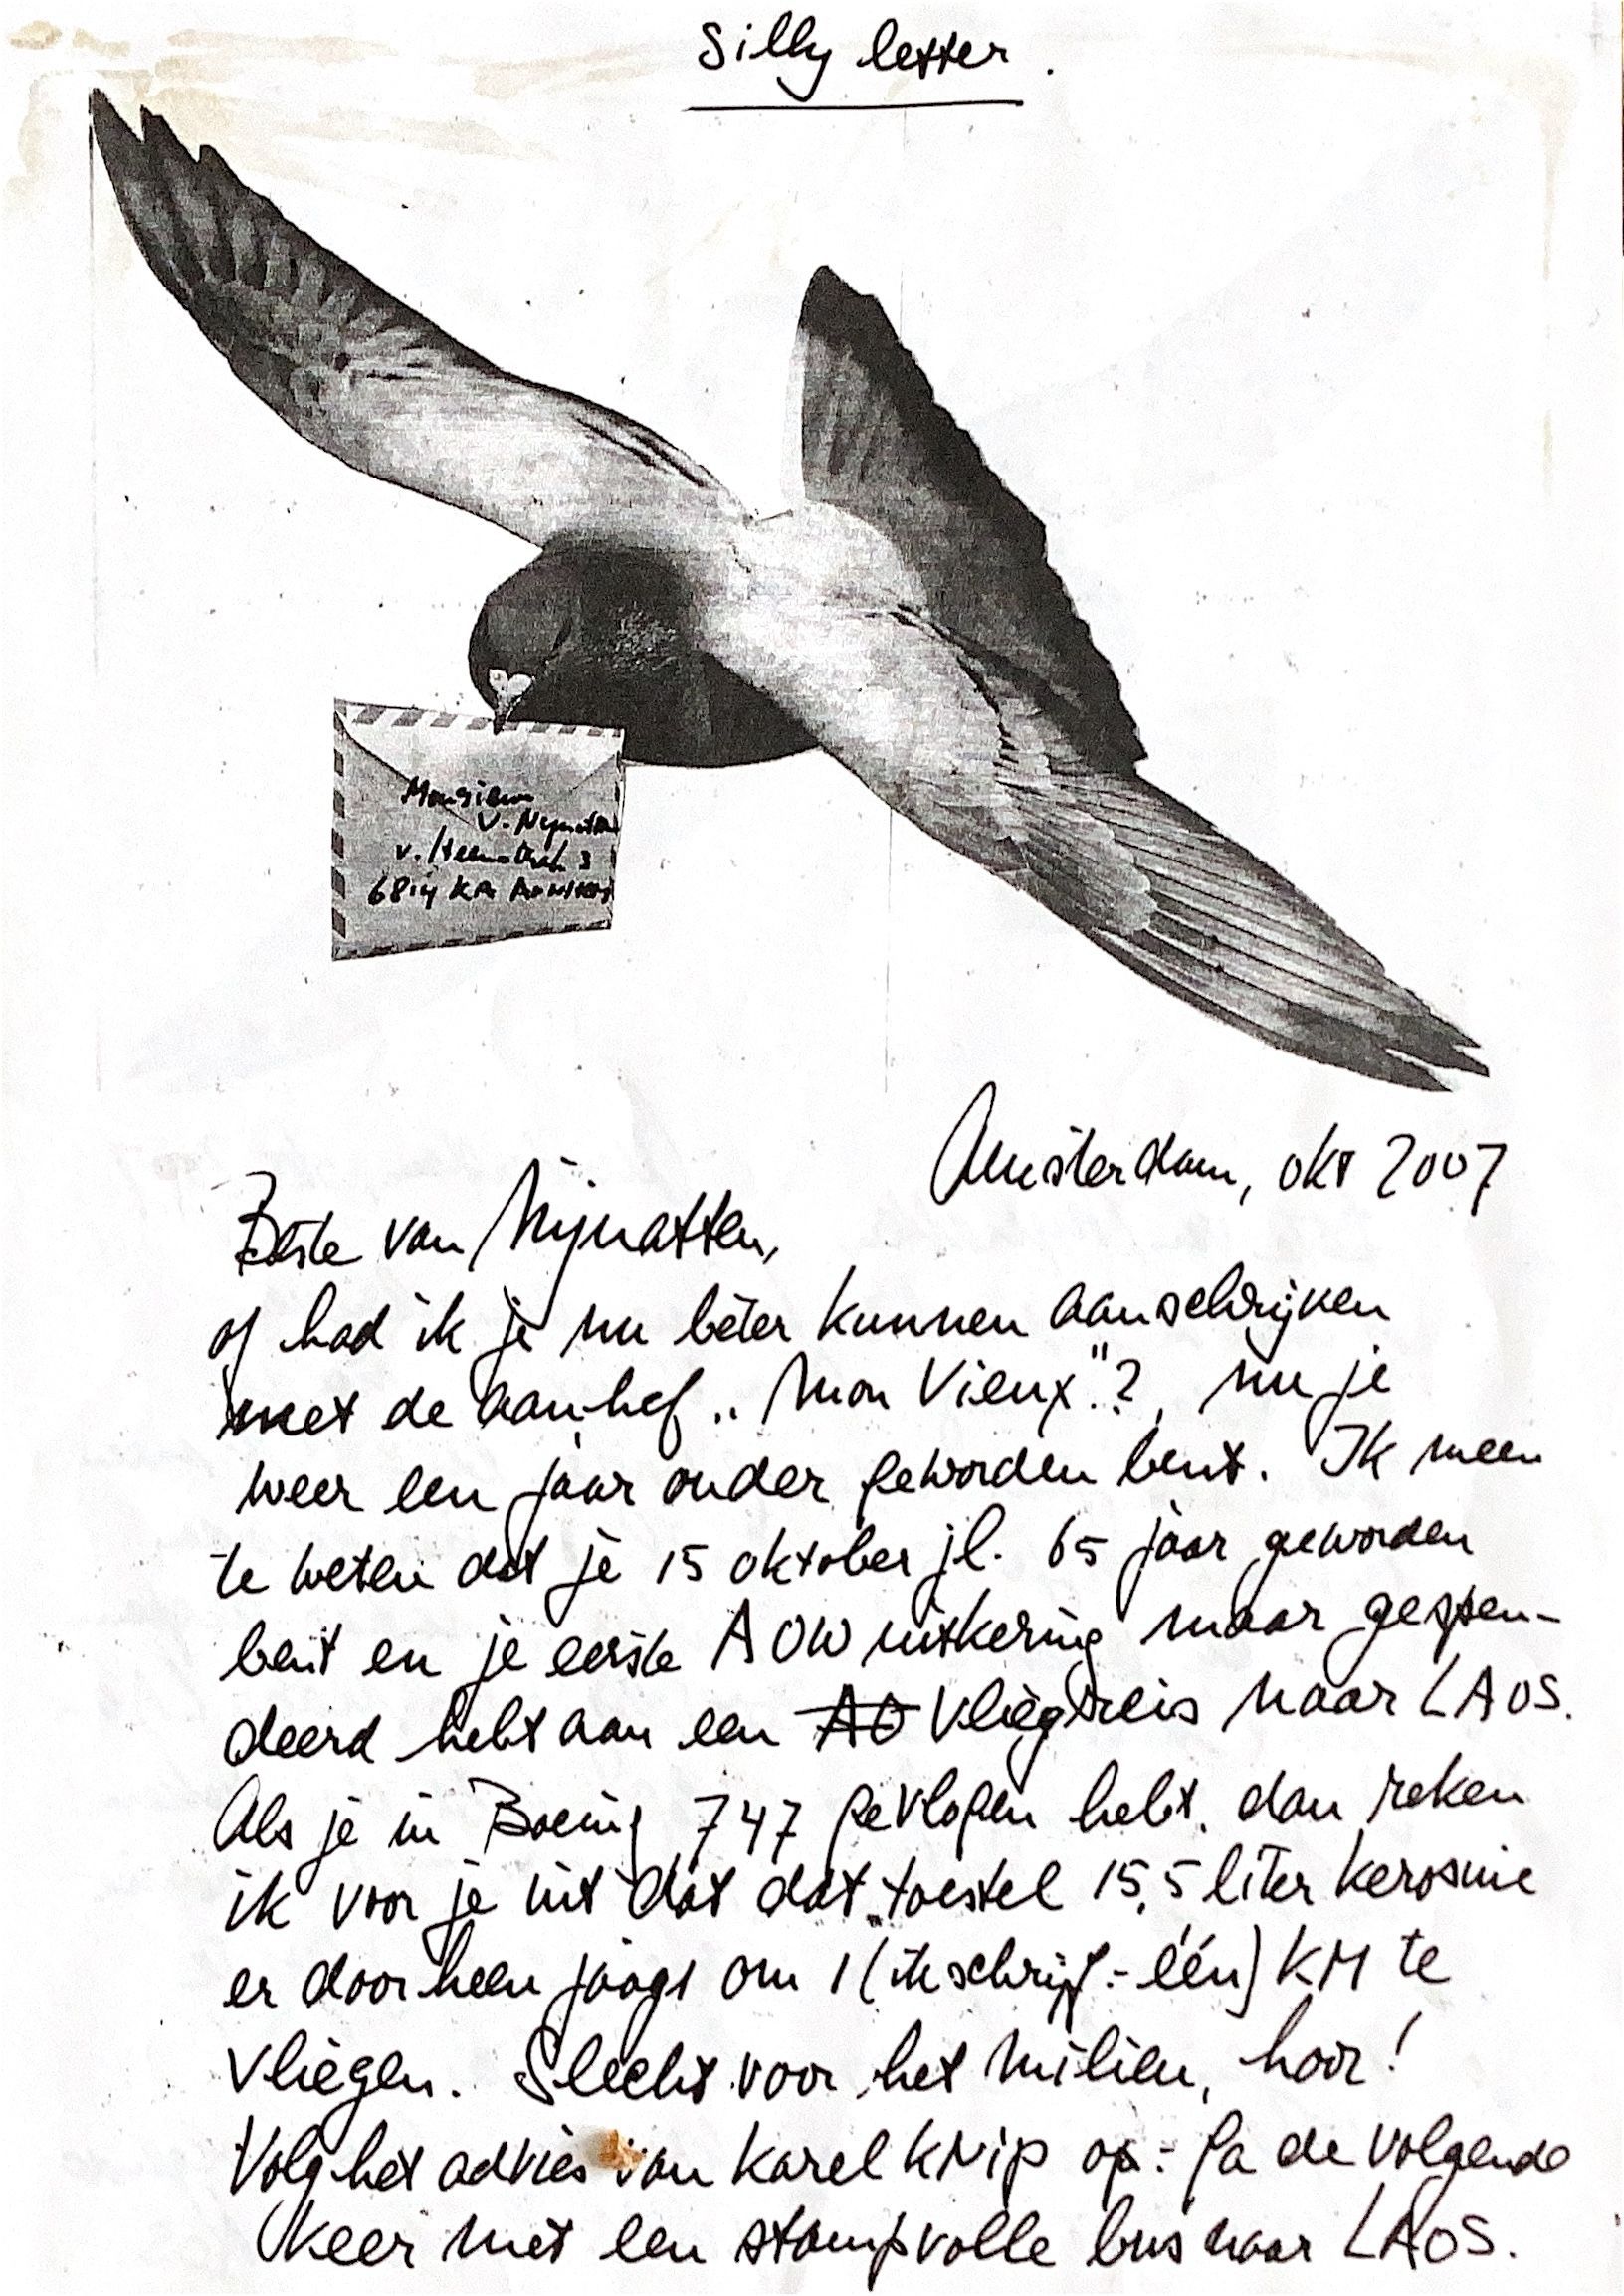 Silly letter.
Monsieur
V. Nijnatten
v. 3
6814 KA
Amsterdam, okt 2007
Beste van Nijnatten,
of had ik je nu beter kunnen aanschrijven
met de aanhef „Mon Vieux"?, nu je
weer een jaar ouder geworden bent. Ik meen
te weten dat je 15 oktober jl. 65 jaar geworden
bent en je eerste AOW uitkering maar gespen-
deerd hebt aan een AO vliegreis naar LAOS.
Als je in Boeing 747 gevlogen hebt, dan reken
ik voor je uit dat dat toestel 15,5 liter kerosine
er doorheen jaagt om 1 (ik schrijf:- één) KM te
vliegen. Slecht voor het milieu, hoor!
Volg het advies van Karel KNip op:- Ga de volgende
keer met een stampvolle bus naar LAOS.